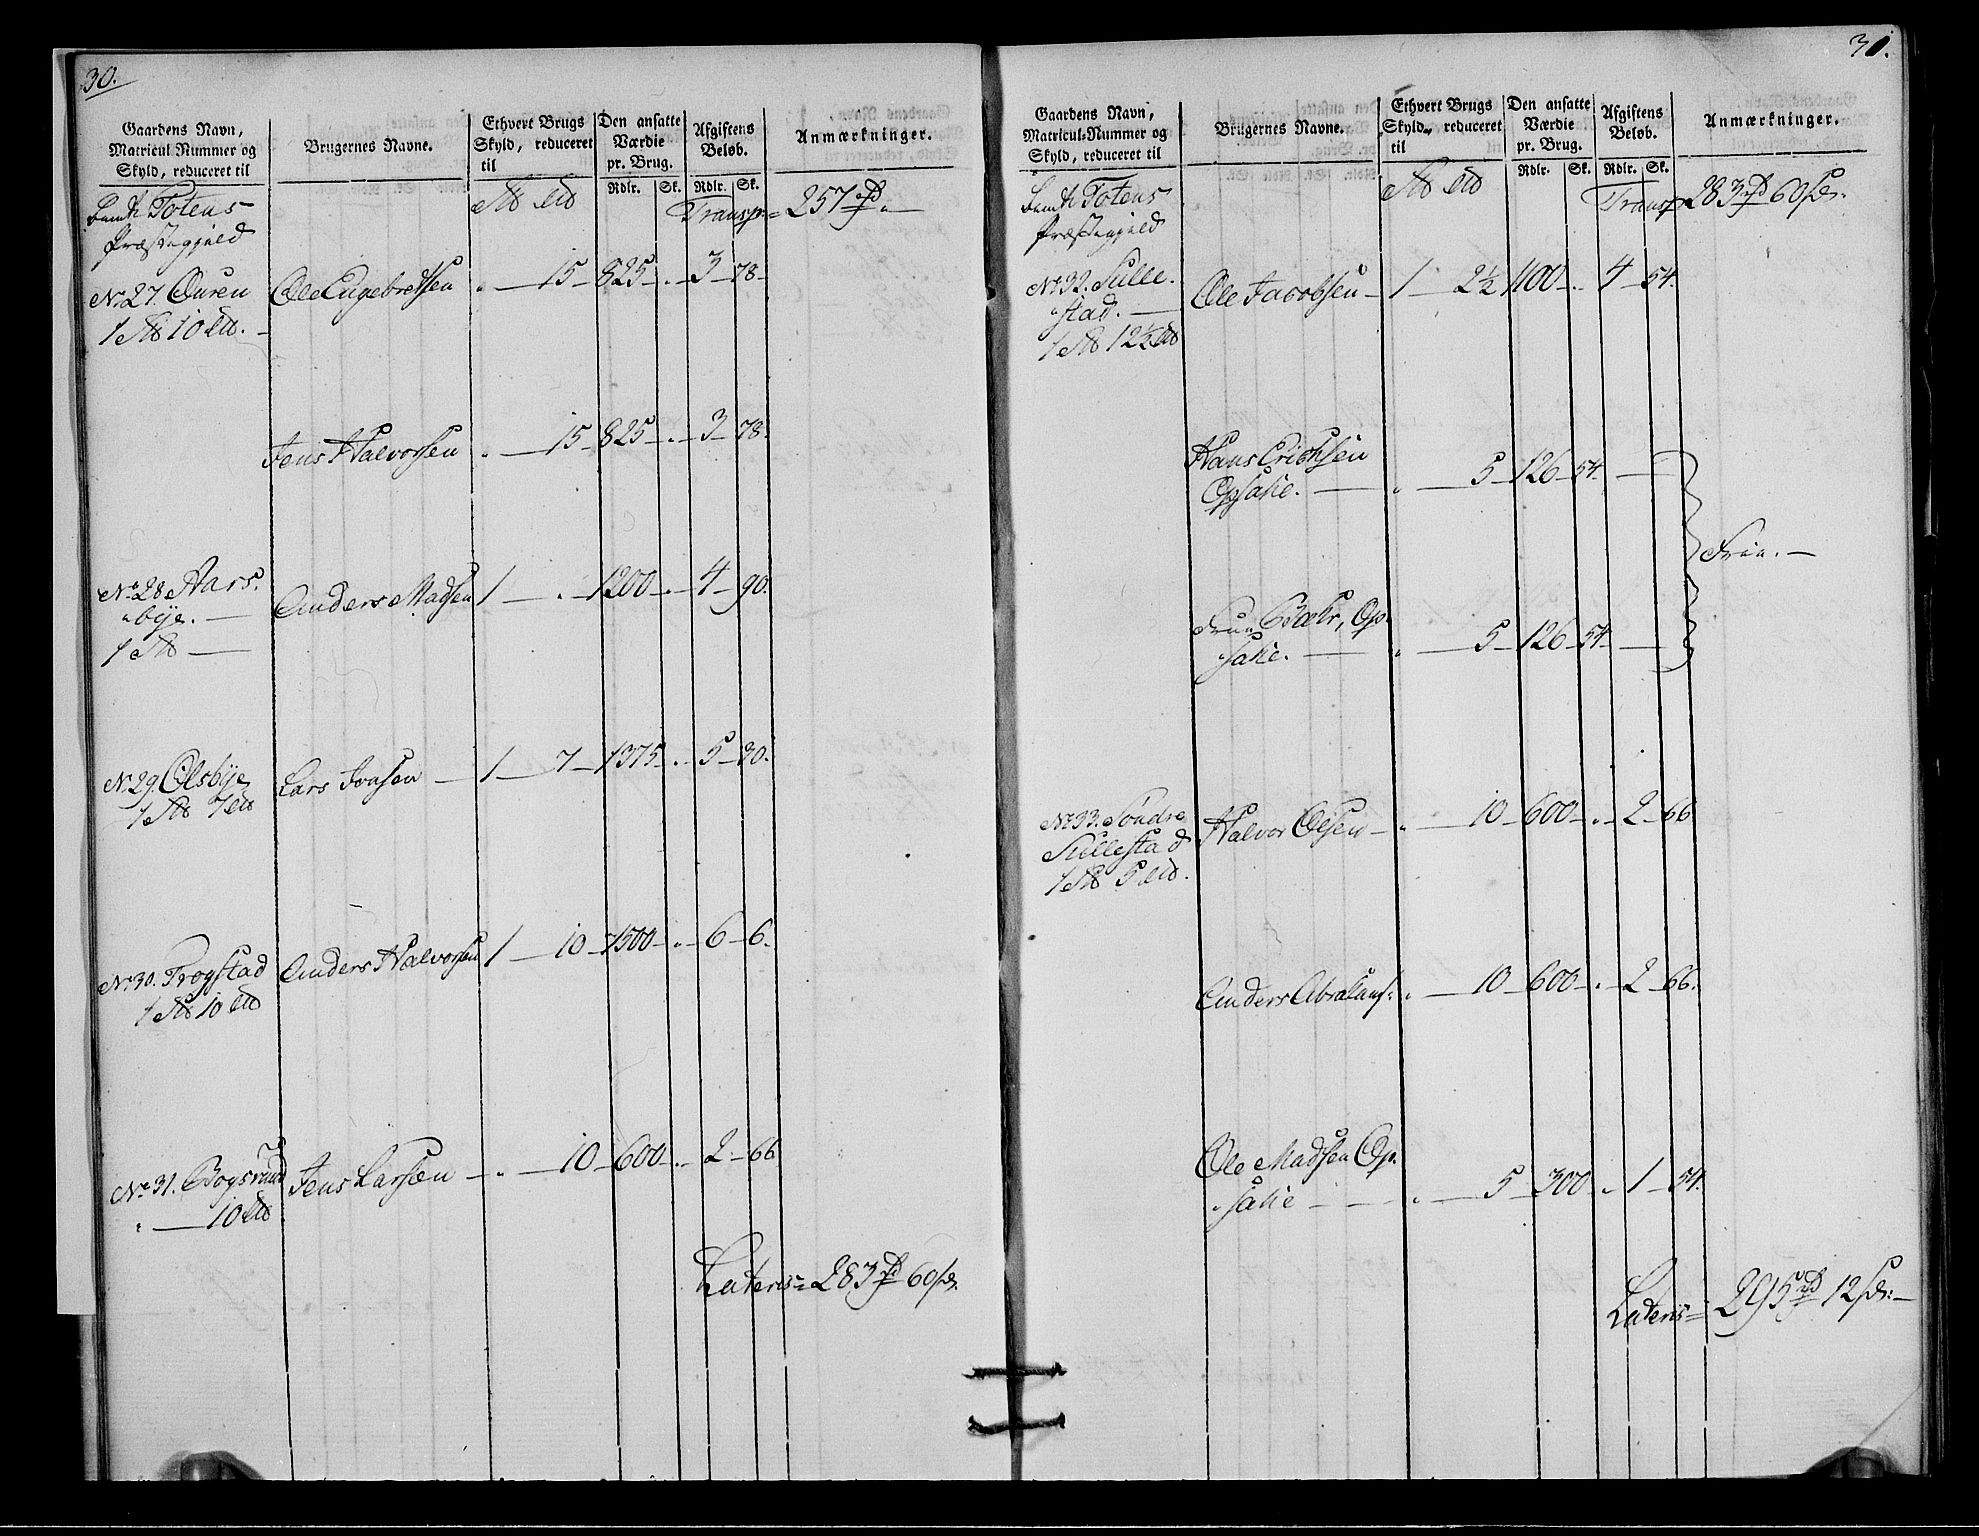 30.
Gaardens Navn, Matricul Nummer og Skyld, reduceret til | Brugernes Navne. | Ethvert Brugs Skyld, reduceret til | Den ansatte Værdie pr. Brug. Rdlr. Sk. | Afgiftens Beløb. Rdlr. Sk. | Anmærkninger.
Totens
Præstegjeld
Transp. = 257
No 27. Øuren | Ole Engebretsen | " — 15 — 825 — " — 3 — 78
1 10
Jens Halvorsen | " — 15 — 825 — " — 3 — 78.
No 28 Aars-
bye. | Anders Madsen | 1 — " — 1200 — " — 4 — 90.
1
No 29. Olsbye | Lars Jonsen | 1 — 7 — 1375 — " — 5 — 30.
1 7
No 30. Trogstad | Anders Halvorsen | 1 — 10 — 1500 — " — 6 — 6.
1 10
No 31. Bogsrud | Jens Larsen | " — 10 — 600 — " — 2 — 66
" — 10
Lateris = 283 60
Gaardens Navn, Matricul-Nummer og Skyld, reduceret til | Brugernes Navne. | Ethvert Brugs Skyld, reduceret til | Den ansatte Værdie pr. Brug. Rdlr. Sk. | Afgiftens Beløb. Rdlr. Sk. | Anmærkninger.
Totens
Præstegjeld
Transp. 283 60
No 32. Sulle-
stad. | Ole Jacobsen | 1 — 2½ — 1100 — " — 4 — 54.
1 12½
Hans Erichsen
Opsahe. | " — 5 — 126 — 54 —
Frie. —
Frue Bæhr, Op-
sahe. | " — 5 — 126 — 54 —
No 33. Søndre
Sullestad | Halvor Olsen | " — 10 — 600 — " — 2 — 66
1 5
Anders Abrahams: | " — 10 — 600 — " — 2 — 66.
Ole Madsen Op-
sahe | " — 5 — 300 — " — 1 — 54.
Lateris = 295 12